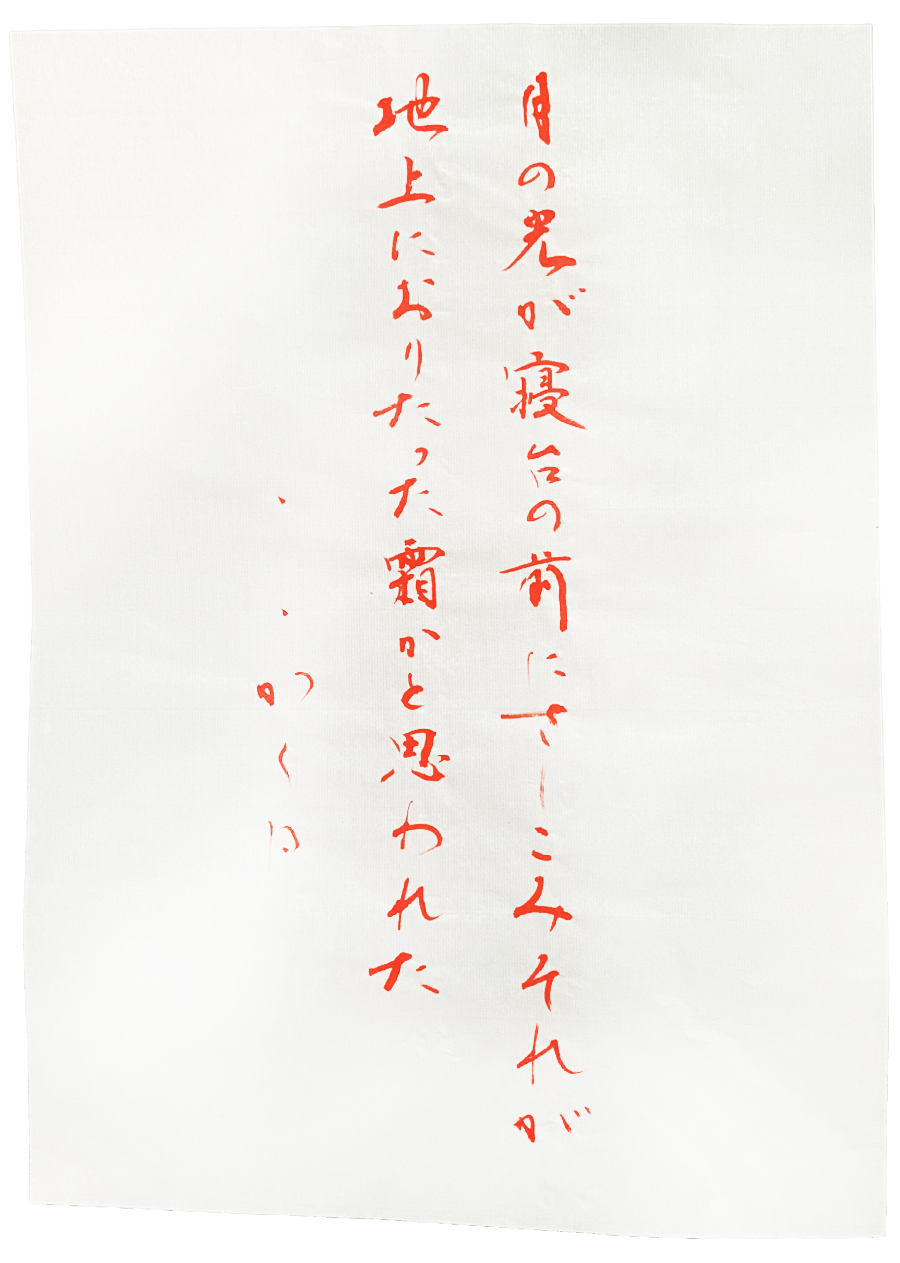 月の光が寝台の前にさしこみそれが
地上におりたった霜かと思われた
、、かくに